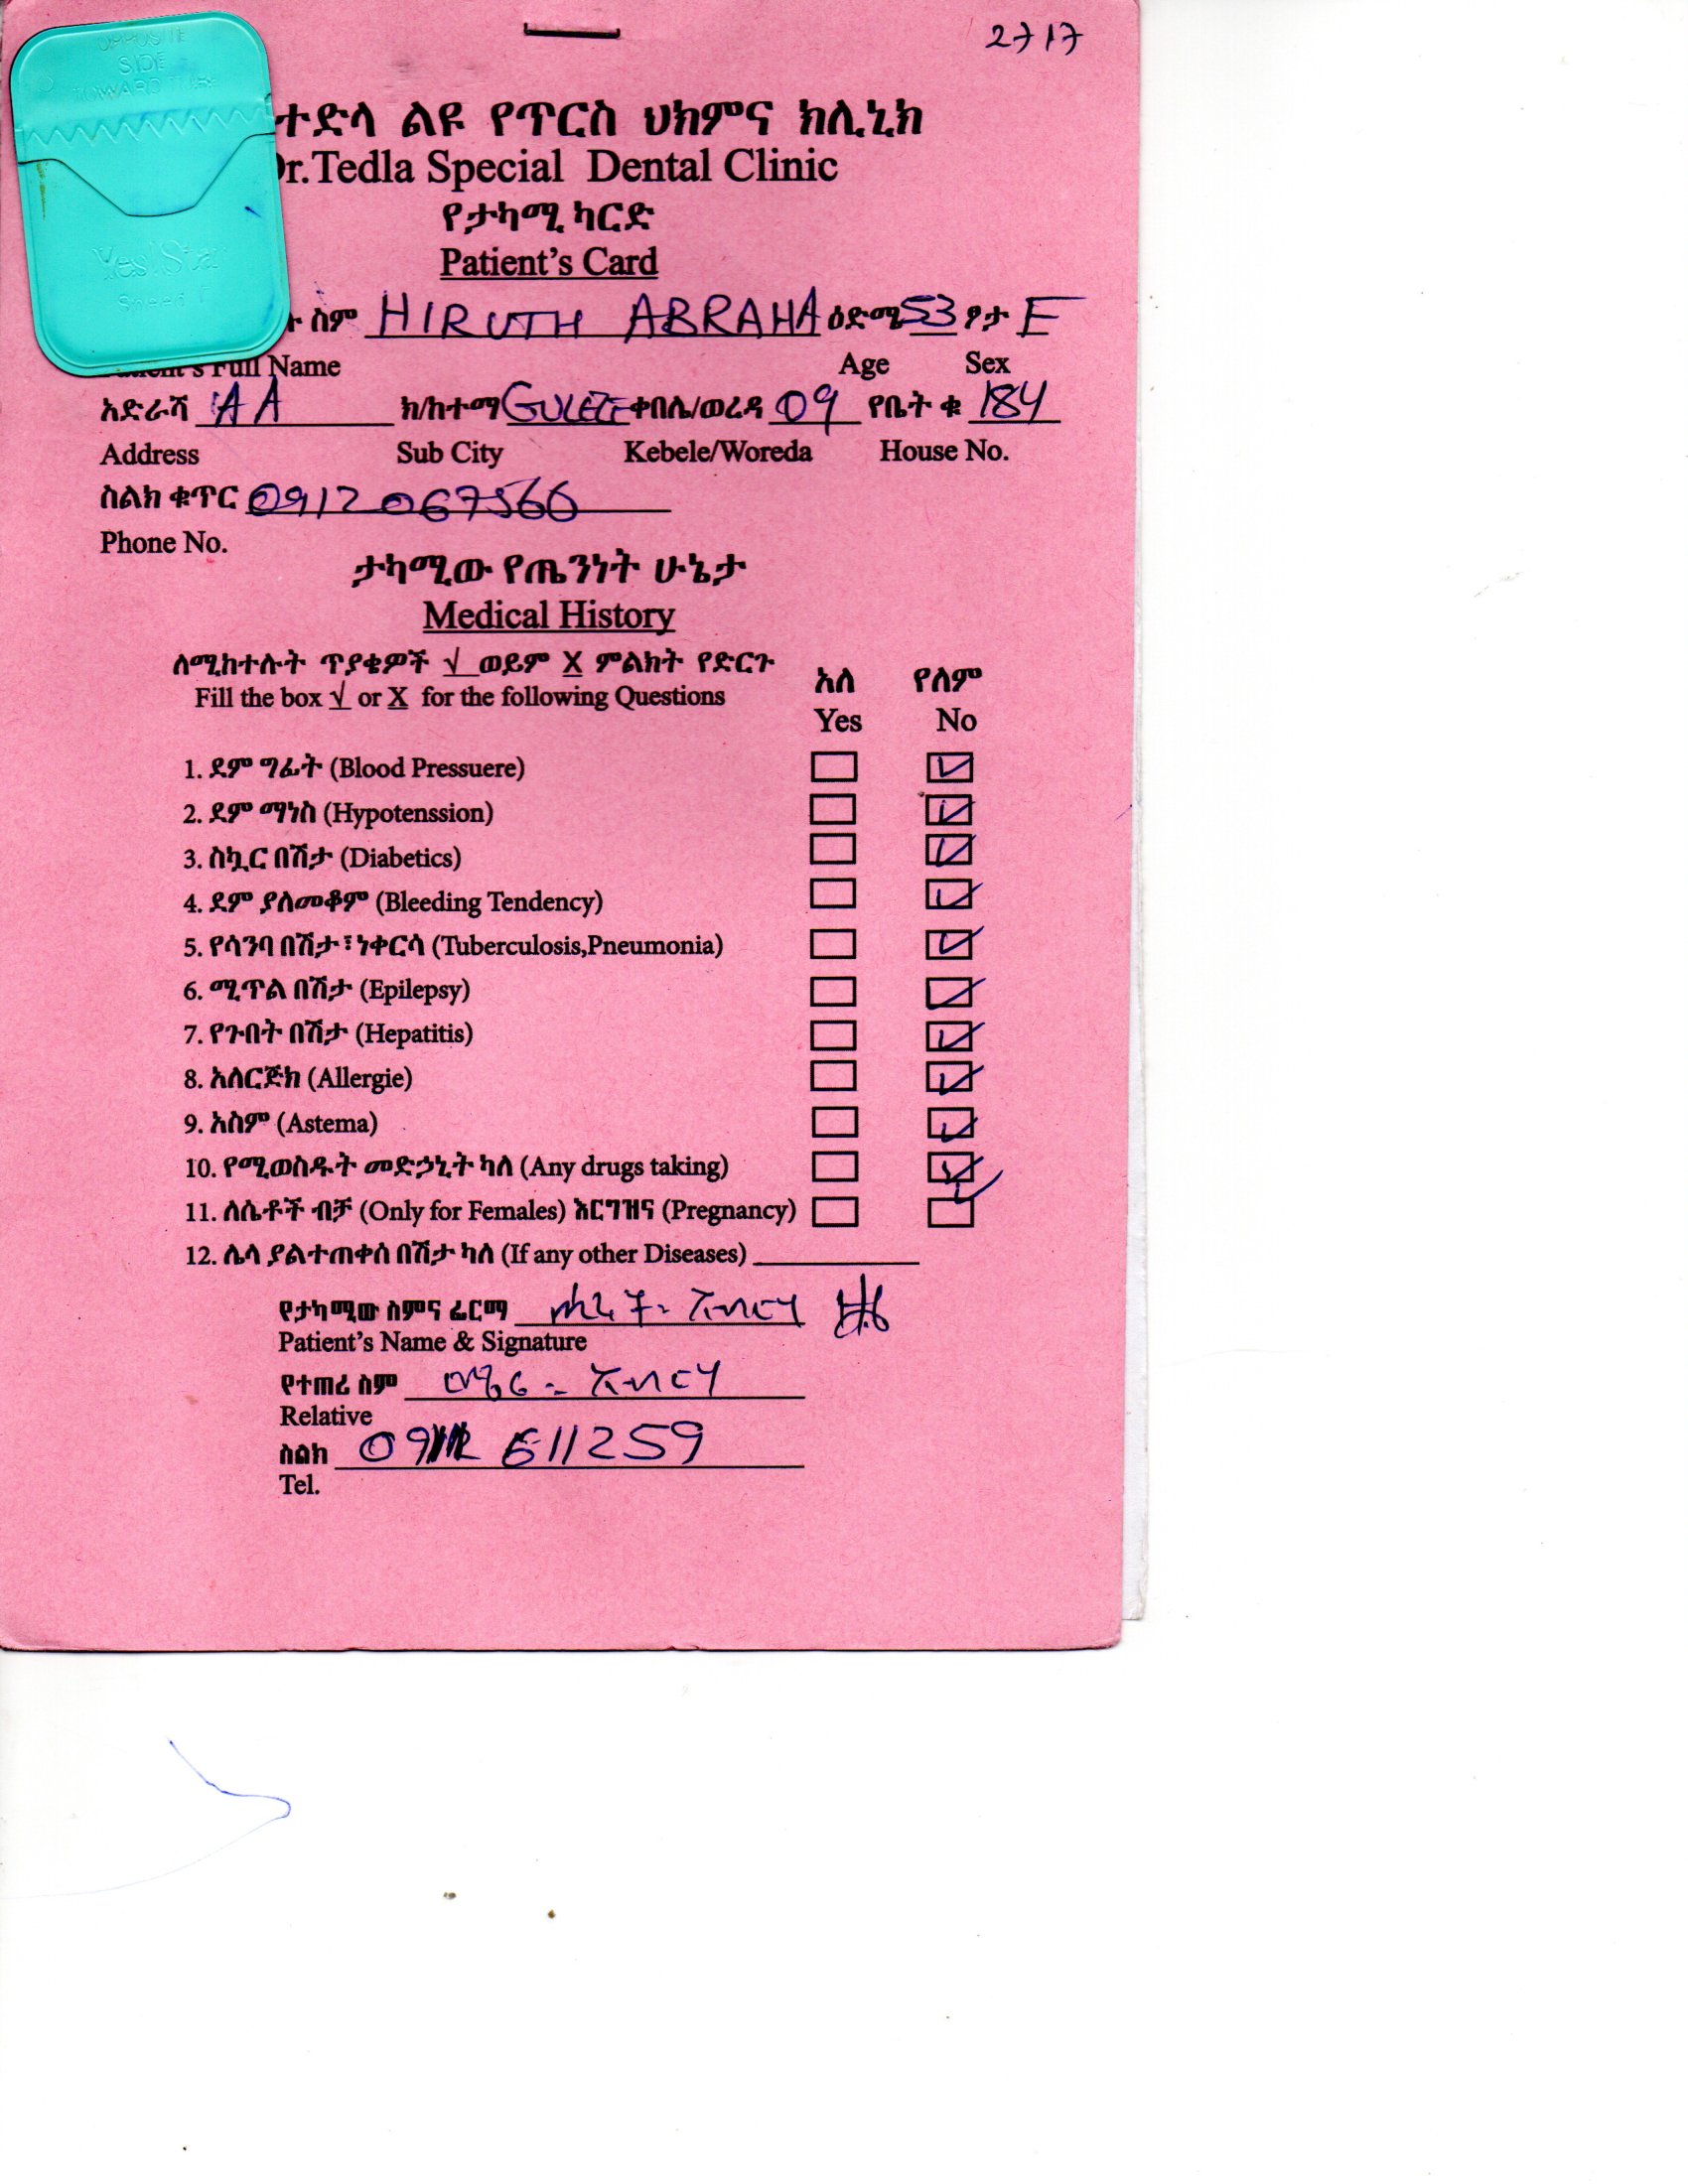 2717
OPPOSITE
SIDE
TOWARD TUBE
ተድላ ልዩ የጥርስ ህክምና ክሊኒክ
Dr.Tedla Special Dental Clinic
የታካሚ ካርድ
Patient's Card
Yes!Star
Speed
ስም HIRUTH ABRAHA ዕድሜ 53 ፆታ F
Patient's Full Name Age Sex
አድራሻ AA ክ/ከተማ GULELE ቀበሌ/ወረዳ 09 የቤት ቁ 184
Address Sub City Kebele/Woreda House No.
ስልክ ቁጥር 0912067566
Phone No.
ታካሚው የጤንነት ሁኔታ
Medical History
ለሚከተሉት ጥያቄዎች √ ወይም X ምልክት የድርጉ
Fill the box √ or X for the following Questions
አለ የለም
Yes No
1. ደም ግፊት (Blood Pressuere)
2. ደም ማነስ (Hypotenssion)
3. ስኳር በሽታ (Diabetics)
4. ደም ያለመቆም (Bleeding Tendency)
5. የሳንባ በሽታ፣ነቀርሳ (Tuberculosis,Pneumonia)
6. ሚጥል በሽታ (Epilepsy)
7. የጉበት በሽታ (Hepatitis)
8. አለርጅክ (Allergie)
9. አስም (Astema)
10. የሚወስዱት መድኃኒት ካለ (Any drugs taking)
11. ለሴቶች ብቻ (Only for Females) እርግዝና (Pregnancy)
12. ሌላ ያልተጠቀሰ በሽታ ካለ (If any other Diseases)
የታካሚው ስምና ፊርማ ሒሩት አብርሃ
Patient's Name & Signature
የተጠሪ ስም አብርሃ
Relative
ስልክ 611259
Tel.